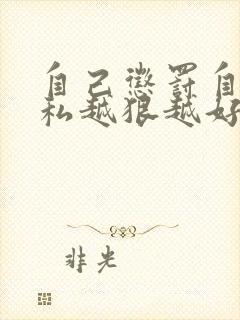 自己惩罚自
私越狠越好
非光